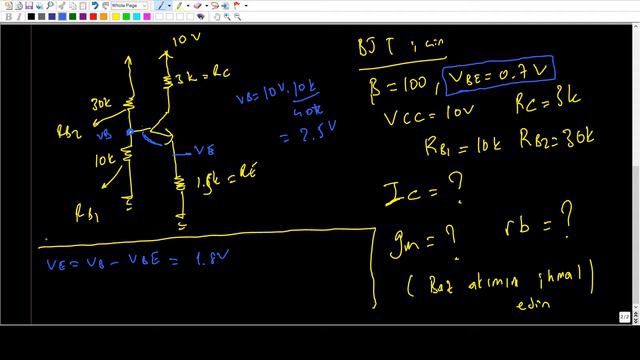 Whole Page
10V
3k = RC
30k
RB2
VB
10k
RB1
VE
1.8k = RE
VB = 10V. 10k
40k
= 2.5V
VE = VB - VBE = 1.8V
BJT için
β = 100, VBE = 0.7V
VCC = 10V RC = 3k
RB1 = 10k RB2 = 30k
IC = ?
gm = ? rb = ?
(Baz akımını ihmal
edin)
2/2